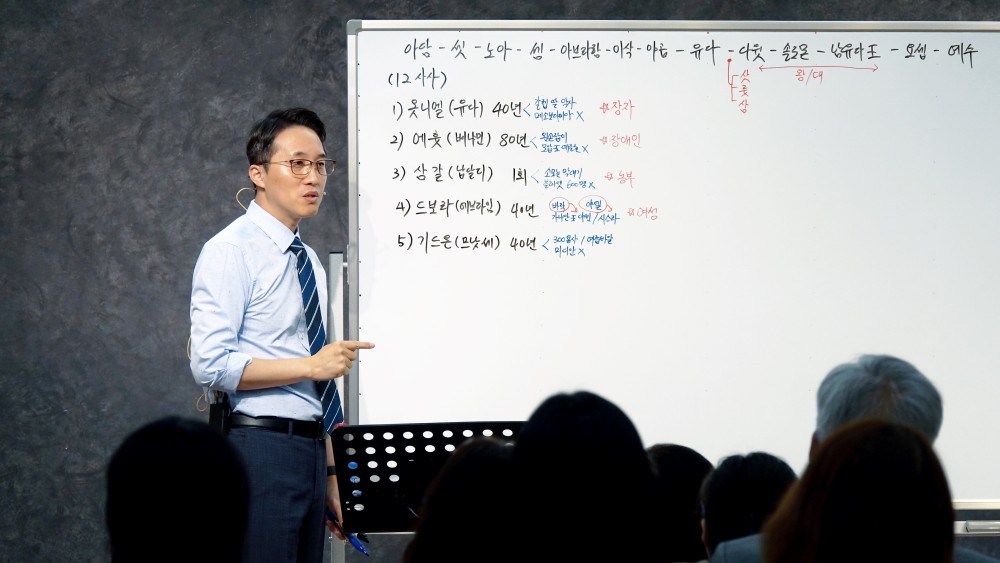 아담 - 씻 - 노아 - 셈 - 아브라함 - 이삭 - 야곱 - 유다 - 다윗 - 솔로몬 - 남유다王 - 요셉 - 예수
삿
룻
삼
왕/대
(12 사사)
1) 옷니엘 (유다) 40년 < 갈렙 딸 악사 ☆장자
메소보다미아 X
2) 에훗 (버냐민) 80년 < 왼손잡이 ☆장애인
모압王 에글론 X
3) 삼갈 (납달리) 1회 < 소모는 막대기 ☆농부
블레셋 600명 X
4) 드보라 (에브라임) 40년 바락 야엘 ☆여성
가나안王 야빈/시스라
5) 기드온 (므낫세) 40년 < 300용사 / 여룹바알
미디안 X